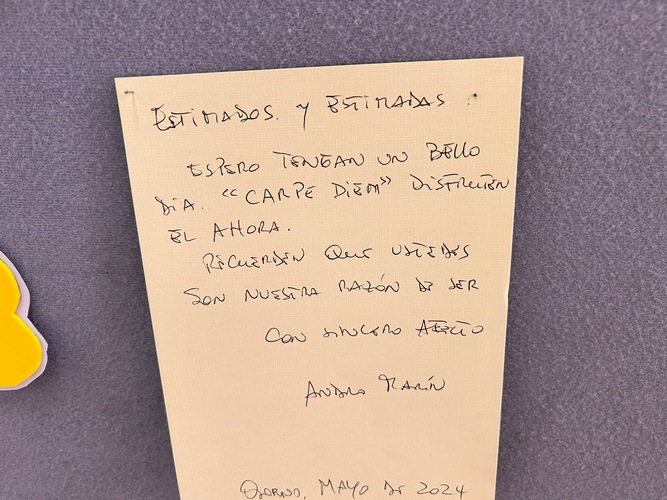 ESTIMADOS. Y ESTIMADAS :
ESPERO TENGAN UN BELLO
DÍA. “CARPE DIEM” DISFRUTEN
EL AHORA.
RECUERDEN QUE USTEDES
SON NUESTRA RAZÓN DE SER
CON SINCERO AFECTO
MARÍN
OSORNO, MAYO DE 2024